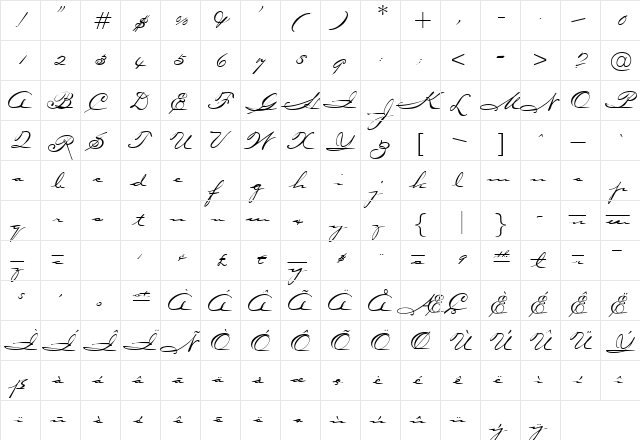 ! " # $ % & ' ( ) * + , - . / 0
1 2 3 4 5 6 7 8 9 : ; < = > ? @
A B C D E F G H I J K L M N O P
Q R S T U V W X Y Z [ \ ] ^ _ `
a b c d e f g h i j k l m n o p
q r s t u v w x y z { | }
£
À Á Â Ã Ä Å Æ Ç È É Ê Ë
Ì Í Î Ï Ñ Ò Ó Ô Õ Ö Ø Ù Ú Û Ü Ý
ß à á â ã ä å æ ç è é ê ë ì í î
ï ñ ò ó ô õ ö ø ù ú û ü ý ÿ